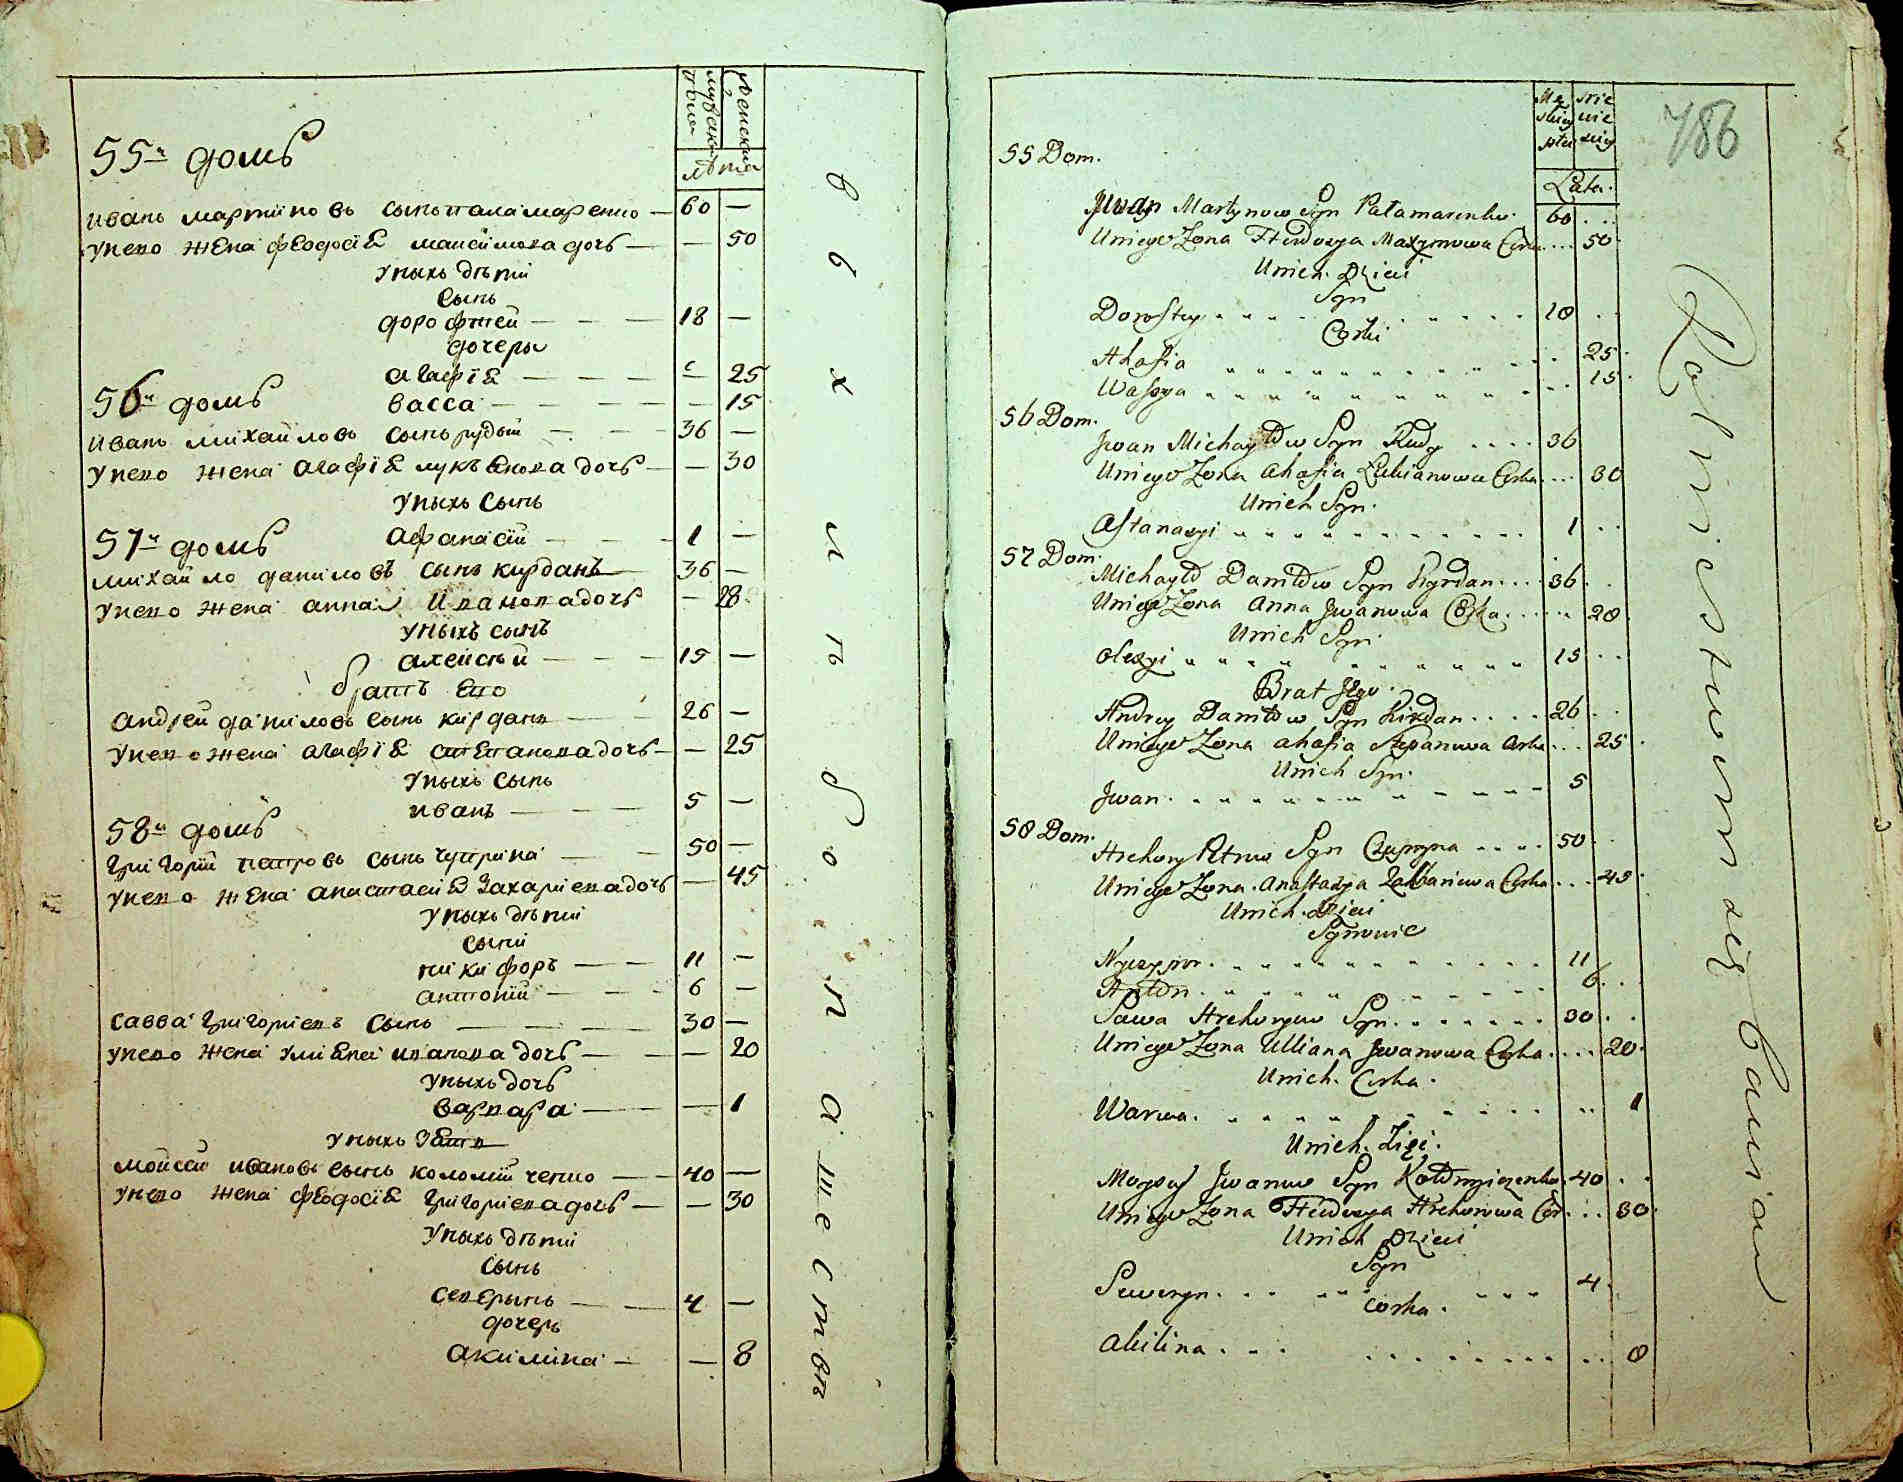 мужеска пола
женска
лѣта
55й домъ
иванъ мартиновъ сынъ паламаренко — 60 —
унего жена феодосіѧ максимова дочь — — 50
унихъ дѣти
сынъ
дорофтей — — — 18 —
дочеры
агафіѧ — — — — 25
56й домъ
васса — — — — 15
иванъ михайловъ сынъ рудый — — 36 —
унего жена агафіѧ лукѣѧнова дочь — — 30
унихъ сынъ
57й домъ
афанасій — — 1 —
михайло даниловъ сынъ кирданъ 36 —
унего жена анна иванова дочь — 28
унихъ сынъ
алексѣй — — — 15 —
братъ его
андрей даниловъ сынъ кирданъ — 26 —
унего жена агафіѧ степанова дочь — — 25
унихъ сынъ
иванъ — — — 5 —
58й домъ
григорій петровъ сынъ чуприна — — 50 —
унего жена анастасіѧ захаріева дочь — 45
унихъ дѣти
сыни
никифоръ — — 11 —
антоній — — — 6 —
савва григоріевъ сынъ — — — 30 —
унего жена улиѧна иванова дочь — — — 20
унихъ дочь
варвара — — — 1
унихъ зѧть
мойсей ивановъ сынъ коломійченко — — 40 —
унего жена феодосіѧ григоріева дочь — — 30
унихъ дѣти
сынъ
северынъ — — 4 —
дочерь
акилина — — 8
в ѣ х л п б о г а ш е с т в
Męskiey płci
żeńskiey
Lata.
786
55 Dom.
Jwan Martynow Syn Pałamarenko. 60 . .
Uniego Zona Fteodosya Maxymowa Corka ... 50
Unich Dzieci
Syn
Doroftey 18 . .
Corki
Ahafia 25
Wassya 15
56 Dom.
Jwan Michayłow Syn Rudy .... 36
Uniego Zona Ahafia Łukianowa Corka ... 30
Unich Syn.
Aftanazyi 1 . .
57 Dom.
Michayło Daniłow Syn Kyrdan .... 36 . .
Uniego Zona Anna Jwanowa Corka ..... 28
Unich Syn
Olexyi 15 . .
Brat Jego.
Andrey Daniłow Syn Kirdan .... 26 . .
Uniego Zona Ahafia Stepanowa Corka ... 25
Unich Syn.
Jwan 5
58 Dom.
Hrehory Petrow Syn Czupryna .... 50 . .
Uniego Zona Anastazya Zachariewa Corka ... 45
Unich Dzieci
Synowie
Nyczypor 11
Anton 6 . .
Sawa Hrehoryew Syn 30 . .
Uniego Zona Ulliana Jwanowa Corka .... 20
Unich Corka.
Warwa 1
Unich Zięć.
Moysey Jwanow Syn Kołomyiczenko 40 . .
Uniego Zona Fteodosya Hrehorowa Cor ... 30
Unich Dzieci
Syn
Seweryn 4
Corka.
Akilina 8